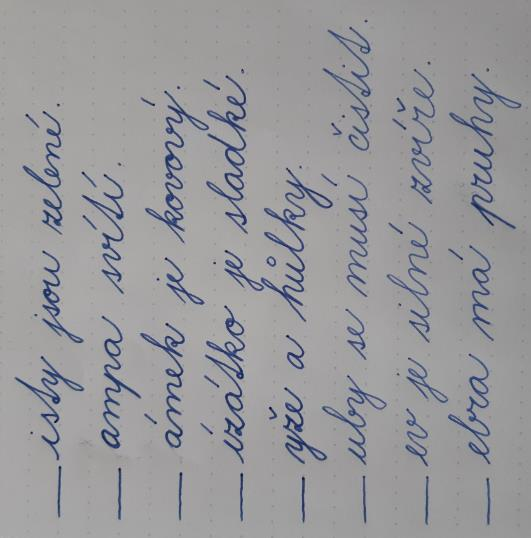 _isty jsou zelené.
_ampa svítí.
_ámek je kovový.
_izátko je sladké.
_yže a hůlky.
_uby se musí čistit.
_ev je silné zvíře.
_ebra má pruhy.